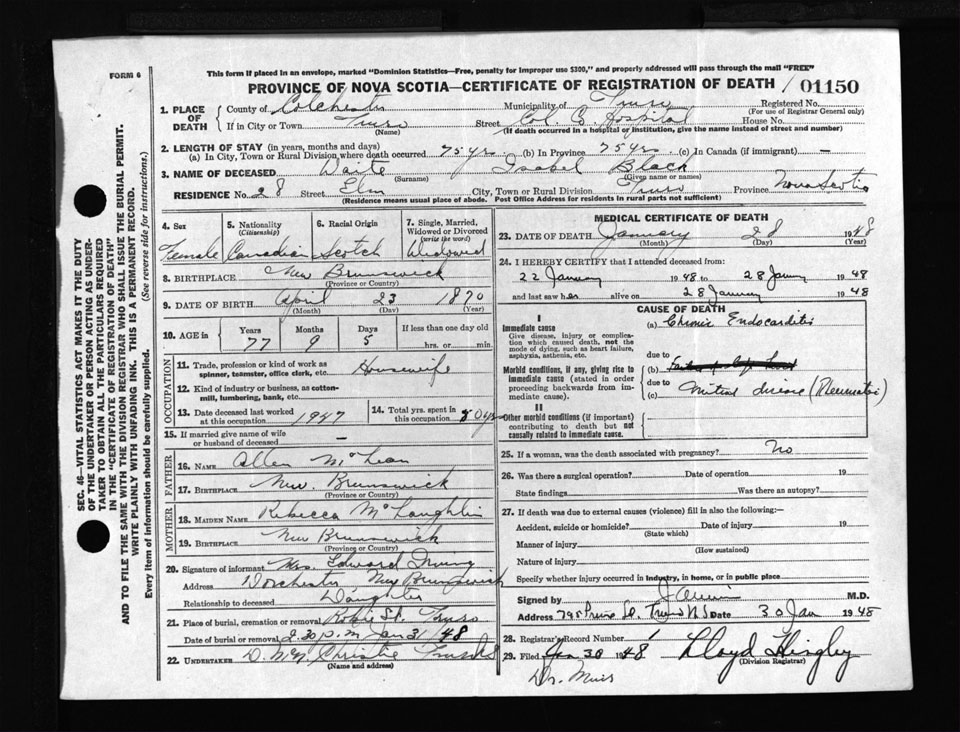 FORM 6
This form if placed in an envelope, marked "Dominion Statistics—Free, penalty for improper use $300," and properly addressed will pass through the mail "FREE"
PROVINCE OF NOVA SCOTIA—CERTIFICATE OF REGISTRATION OF DEATH / 01150
SEC. 46—VITAL STATISTICS ACT MAKES IT THE DUTY
OF THE UNDERTAKER OR PERSON ACTING AS UNDER-
TAKER TO OBTAIN ALL THE PARTICULARS REQUIRED
IN THE "CERTIFICATE OF REGISTRATION OF DEATH"
AND TO FILE THE SAME WITH THE DIVISION REGISTRAR WHO SHALL ISSUE THE BURIAL PERMIT.
WRITE PLAINLY WITH UNFADING INK. THIS IS A PERMANENT RECORD.
Every item of information should be carefully supplied. (See reverse side for instructions.)
1. PLACE OF DEATH
County of Colchester Municipality of Truro Registered No.
(For use of Registrar General only)
If in City or Town Truro Street Col. Co. Hospital House No.
(Name) (If death occurred in a hospital or institution, give the name instead of street and number)
2. LENGTH OF STAY (in years, months and days)
(a) In City, Town or Rural Division where death occurred 75 yrs. (b) In Province 75 yrs. (c) In Canada (if immigrant) —
3. NAME OF DECEASED Waite Isabel Black
(Surname) (Given name or names)
RESIDENCE No. 28 Street Elm City, Town or Rural Division Truro Province Nova Scotia
(Residence means usual place of abode. Post Office Address for residents in rural parts not sufficient)
4. Sex
Female
5. Nationality
(Citizenship)
Canadian
6. Racial Origin
Scotch
7. Single, Married,
Widowed or Divorced
(write the word)
Widowed
8. BIRTHPLACE New Brunswick
(Province or Country)
9. DATE OF BIRTH April 23 1870
(Month) (Day) (Year)
10. AGE in Years Months Days If less than one day old
77 9 5 hrs. or min.
OCCUPATION
11. Trade, profession or kind of work as
spinner, teamster, office clerk, etc. Housewife
12. Kind of industry or business, as cotton-
mill, lumbering, bank, etc.
13. Date deceased last worked
at this occupation 1947
14. Total yrs. spent in
this occupation 50 yrs
15. If married give name of wife
or husband of deceased —
FATHER
16. NAME Allen McLean
17. BIRTHPLACE New Brunswick
(Province or Country)
MOTHER
18. MAIDEN NAME Rebecca McLaughlin
19. BIRTHPLACE New Brunswick
(Province or Country)
20. Signature of informant Mrs. Edward Irving
Address Dorchester New Brunswick
Relationship to deceased Daughter
21. Place of burial, cremation or removal Robie St. Truro
Date of burial or removal 2.30 p.m. Jan 31 / 48
22. UNDERTAKER Christie Truro N.S.
(Name and address)
MEDICAL CERTIFICATE OF DEATH
23. DATE OF DEATH January 28 1948
(Month) (Day) (Year)
24. I HEREBY CERTIFY that I attended deceased from:
22 January 1948 to 28 January 1948
and last saw her alive on 28 January 1948
CAUSE OF DEATH
I
Immediate cause
Give disease, injury or complica-
tion which caused death, not the
mode of dying, such as heart failure,
asphyxia, asthenia, etc.
(a) Chronic Endocarditis
due to
Morbid conditions, if any, giving rise to
immediate cause (stated in order
proceeding backwards from im-
mediate cause).
(b)
due to
(c) Mitral disease (Rheumatic)
II
Other morbid conditions (if important)
contributing to death but not
causally related to immediate cause.
25. If a woman, was the death associated with pregnancy? No
26. Was there a surgical operation? Date of operation 19
State findings Was there an autopsy?
27. If death was due to external causes (violence) fill in also the following:—
Accident, suicide or homicide? Date of injury 19
(State which)
Manner of injury
(How sustained)
Nature of injury
Specify whether injury occurred in industry, in home, or in public place
Signed by M.D.
Address Prince St. Truro N.S. Date 30 Jan 1948
28. Registrar's Record Number 1
29. Filed Jan 30 1948 Lloyd Hingley
(Division Registrar)
Dr. Muir